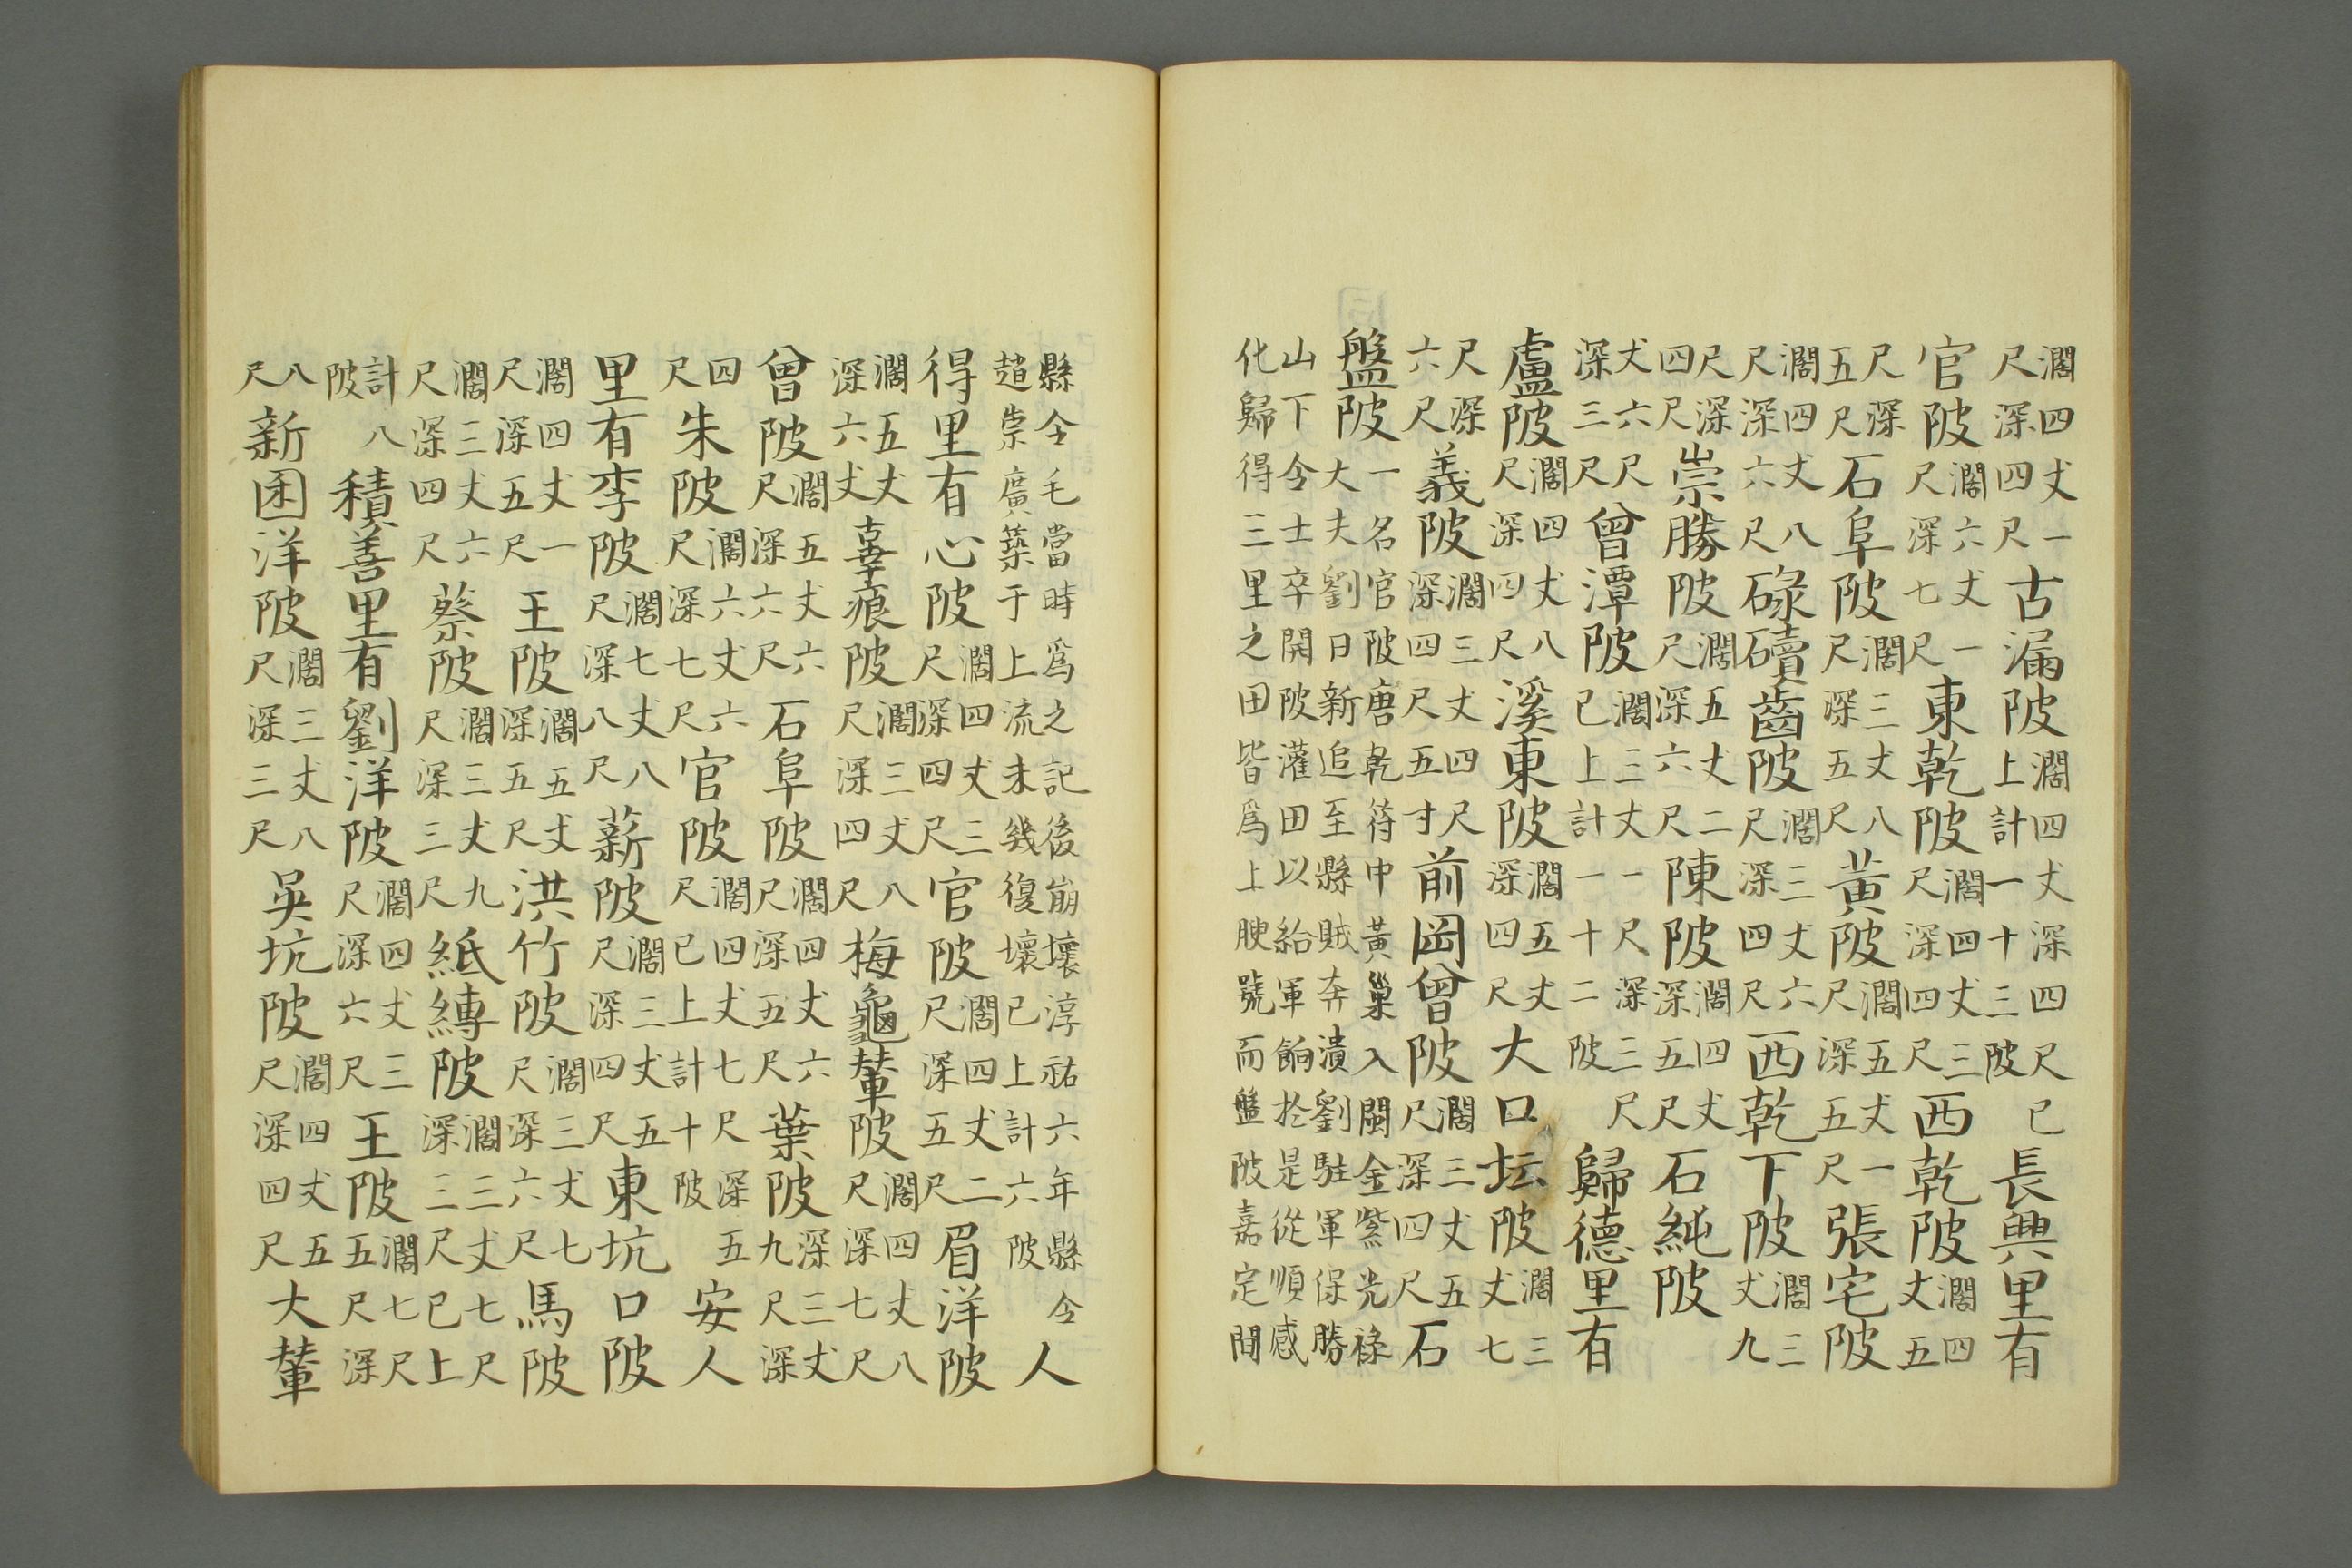 濶四丈一尺深四尺古漏陂濶四丈深四尺已上計一十三陂長興里有
官陂濶六丈一尺深七尺東乾陂濶四丈三尺深四尺西乾陂濶四丈五
尺深五尺石阜陂濶三丈八尺深五尺黃陂濶五丈一尺深五尺張宅陂
濶四丈八尺深六尺碌齒陂濶三丈六尺深四尺西乾下陂濶三丈九
尺深四尺崇勝陂濶五丈二尺深六尺陳陂濶四丈深五尺石純陂
丈六尺深三尺曾潭陂濶三丈一尺深三尺已上計一十二陂歸德里有
盧陂濶四丈八尺深四尺溪東陂濶五丈深四尺大口坛陂濶三丈七
尺深六尺義陂濶三丈四尺深四尺五寸前岡曾陂濶三丈五尺深四尺石
盤陂一名官陂唐乾符中黃巢入閩金紫光祿大夫劉日新追至縣賊奔潰劉駐軍保勝
山下令士卒開陂灌田以給軍餉於是從順感化歸得三里之田皆爲上腴號而盤陂嘉定間
縣令毛當時爲之記後崩壞淳祐六年縣令趙崇廣築于上流未幾復壞已上計六陂人
得里有心陂濶四丈三尺深四尺官陂濶四丈二尺深五尺眉洋陂
濶五丈深六丈辜痕陂濶三丈八尺深四尺梅龜輦陂濶四丈八尺深七尺
曾陂濶五丈六尺深六尺石阜陂濶四丈六尺深五尺葉陂深三丈九尺深
四尺朱陂濶六丈六尺深七尺官陂濶四丈七尺深五尺已上計十陂安人
里有李陂濶七丈八尺深八尺薪陂濶三丈五尺深四尺東坑口陂
濶四丈一尺深五尺王陂濶五丈深五尺洪竹陂濶三丈七尺深六尺馬陂
濶三丈六尺深四尺蔡陂濶三丈九尺深三尺紙縳陂濶三丈七尺深三尺已上
計八陂積善里有劉洋陂濶四丈三尺深六尺王陂濶七尺五尺深
八尺新困洋陂濶三丈八尺深三尺吳坑陂濶四丈五尺深四尺大輦